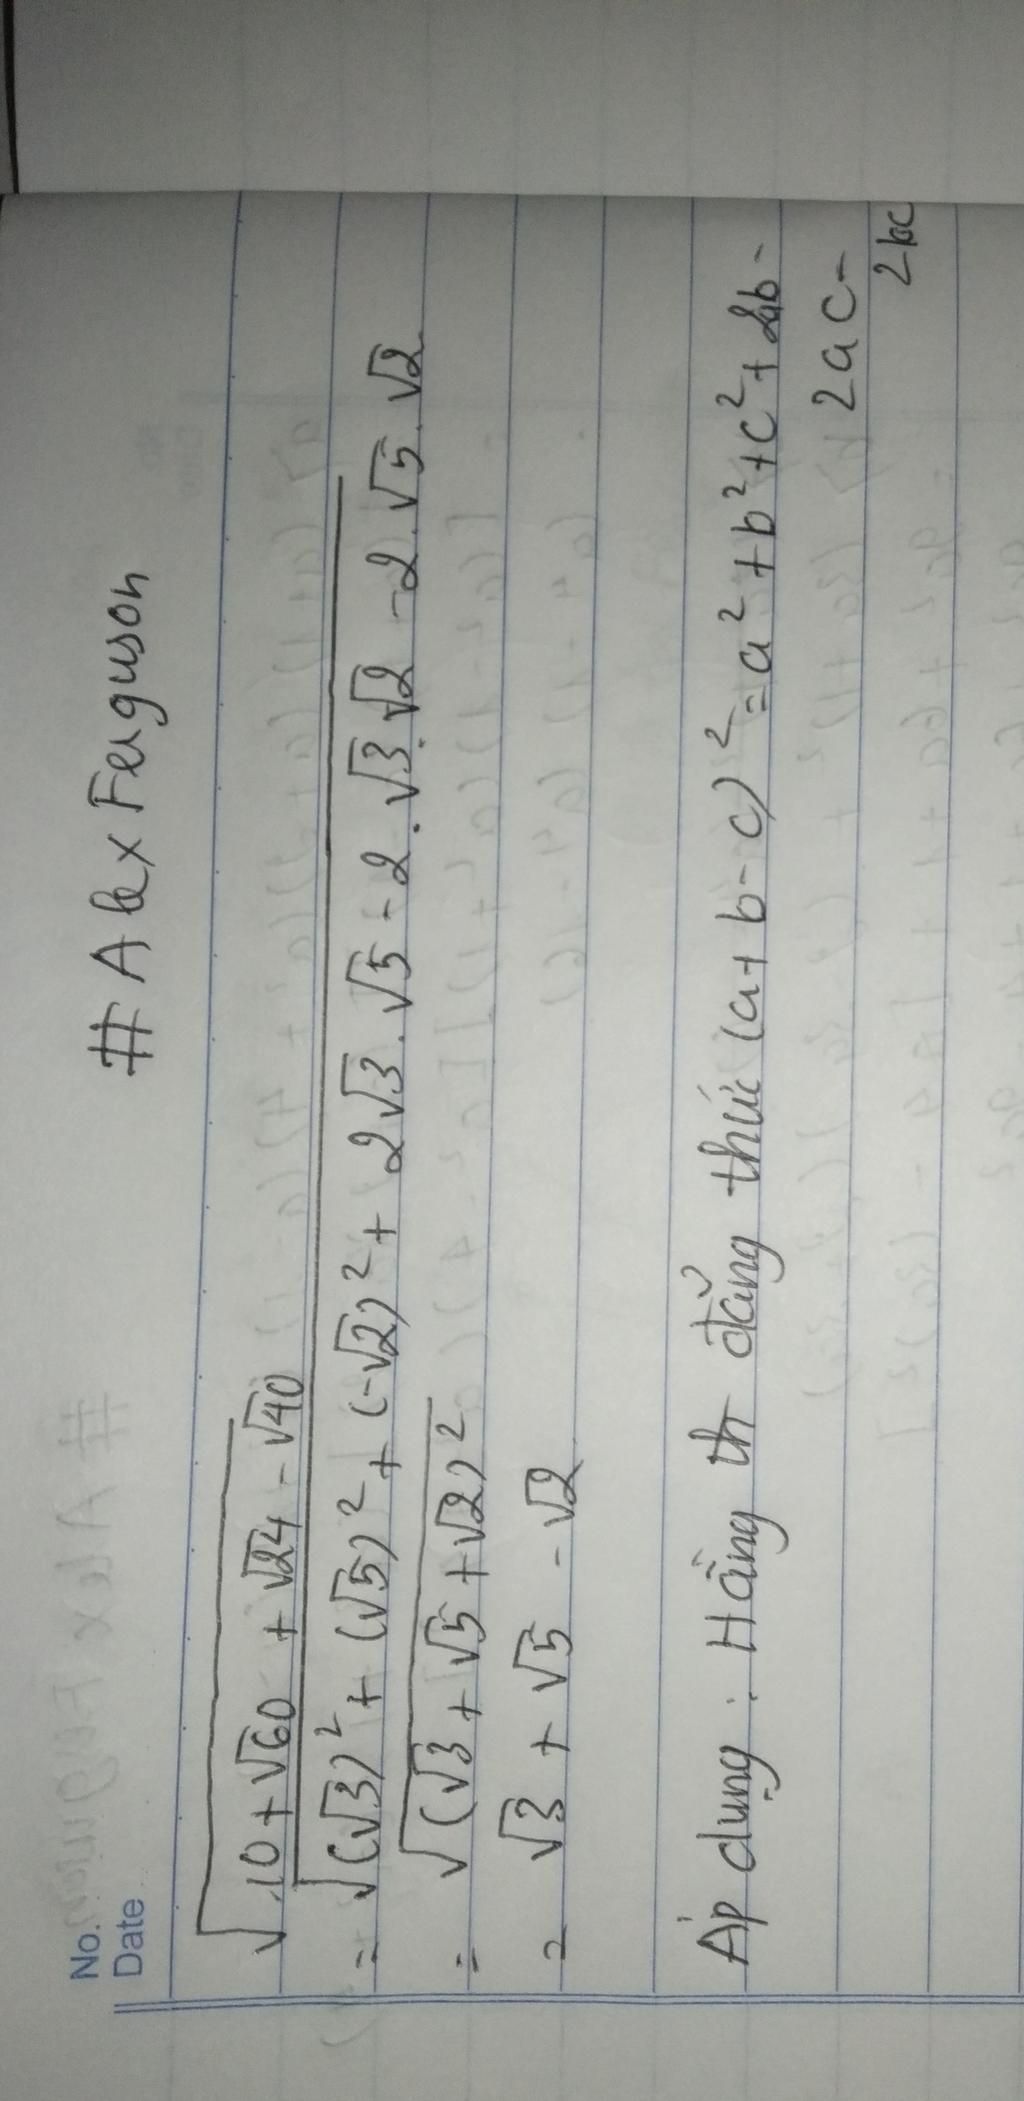 No.
Date
# Alex Ferguson
√10 + √60 + √24 - √40
= √(√3)² + (√5)² + (-√2)² + 2√3.√5 - 2.√3.√2 - 2.√5.√2
= √(√3 + √5 + √2)²
= √3 + √5 - √2
Áp dụng : Hằng th đẳng thức (a + b - c)² = a² + b² + c² + 2ab -
2ac -
2bc